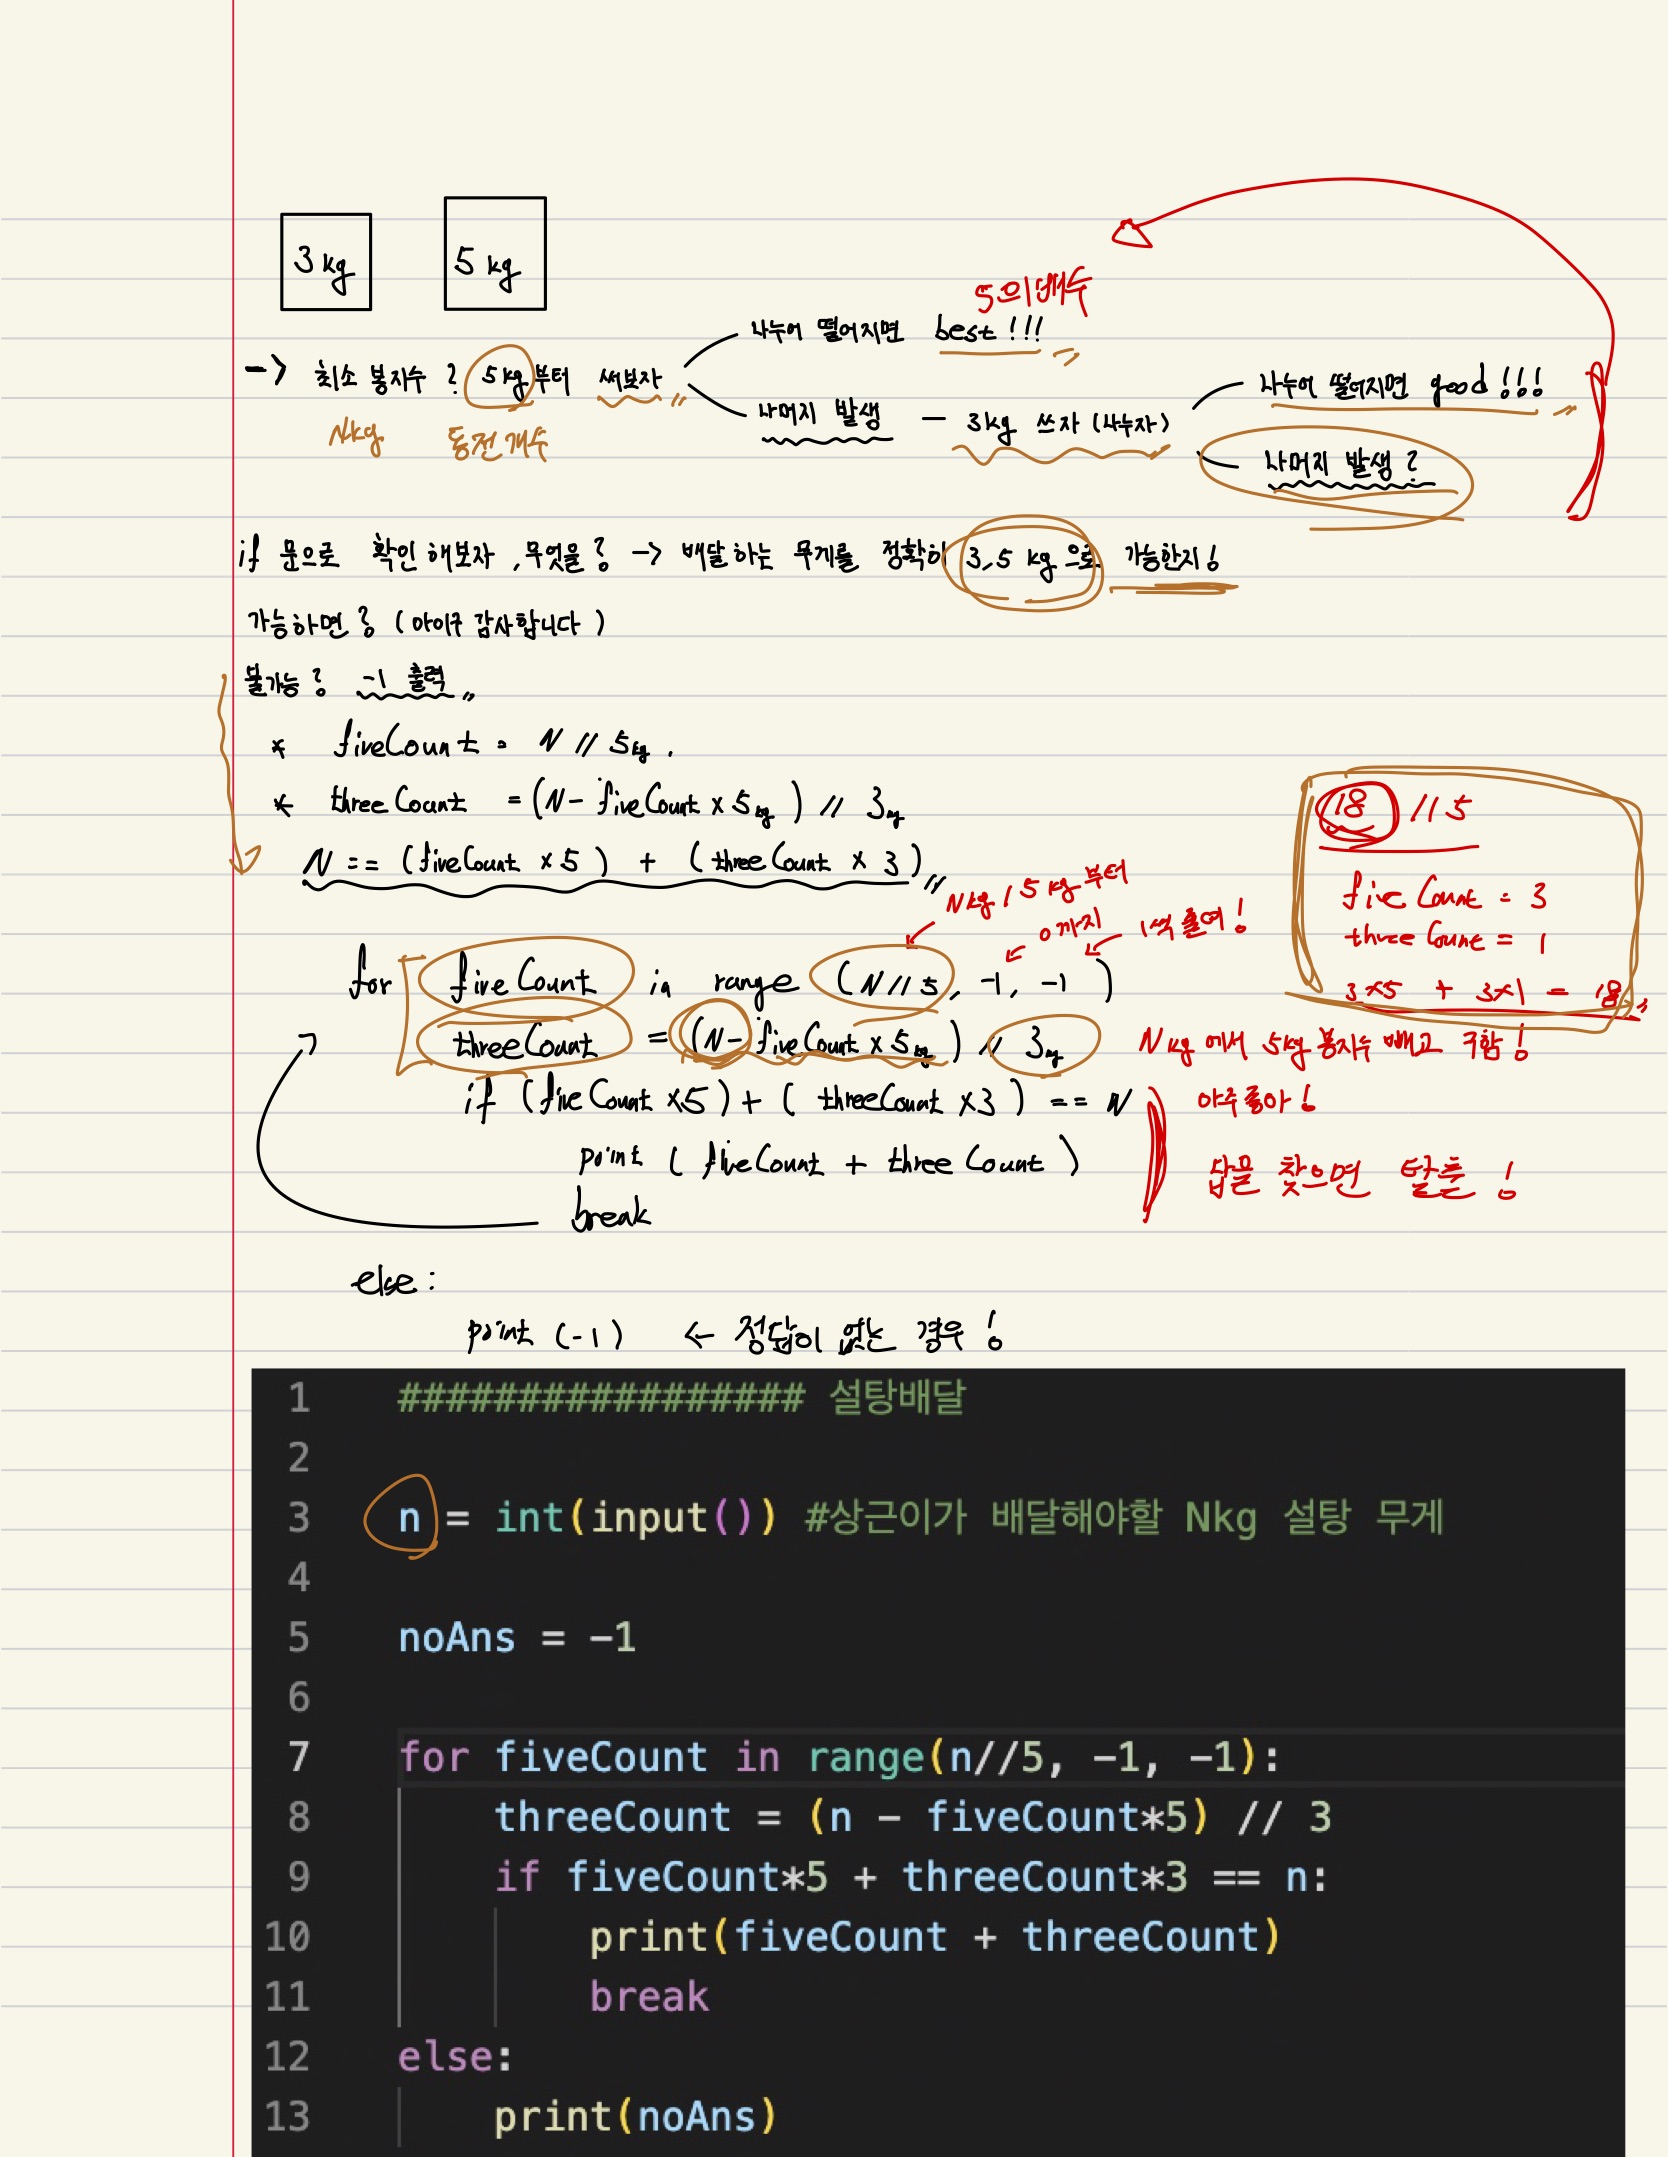 3 kg
5 kg
5의 배수
나누어 떨어지면 best!!!
-> 최소 봉지수? 5kg부터 써보자
나누어 떨어지면 good!!!
나머지 발생 - 3kg 쓰자 (나누자)
Nkg 동전개수
나머지 발생?
if 문으로 확인해보자, 무엇을? -> 배달하는 무게를 정확히 3,5 kg으로 가능한지!
가능하면? (아이구 감사합니다)
불가능? -1 출력
* fiveCount = N // 5kg.
* threeCount = (N - fiveCount x 5kg) // 3kg
N == (fiveCount x 5) + (threeCount x 3)
18 //5
fiveCount = 3
threeCount = 1
3x5 + 3x1 = 18
Nkg / 5kg 부터
0까지
1씩 줄여!
for fiveCount in range (N//5, -1, -1)
threeCount = (N - fiveCount x 5kg) // 3kg
Nkg에서 5kg 봉지수 빼고 구함!
if (fiveCount x5) + (threeCount x3) == N
아주좋아!
print (fiveCount + threeCount)
답을 찾으면 탈출!
break
else:
print (-1) <- 정답이 없는 경우!
1 ################# 설탕배달
2
3 n = int(input()) #상근이가 배달해야할 Nkg 설탕 무게
4
5 noAns = -1
6
7 for fiveCount in range(n//5, -1, -1):
8 threeCount = (n - fiveCount*5) // 3
9 if fiveCount*5 + threeCount*3 == n:
10 print(fiveCount + threeCount)
11 break
12 else:
13 print(noAns)